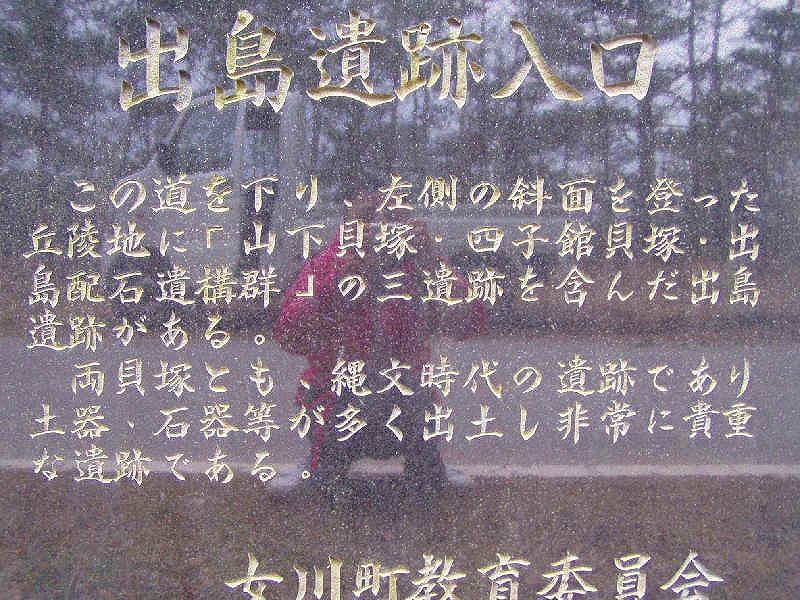 出島遺跡入口
この道を下り、左側の斜面を登った
丘陵地に「山下貝塚・四子館貝塚・出
島配石遺構群」の三遺跡を含んだ出島
遺跡がある。
両貝塚とも、縄文時代の遺跡であり
土器、石器等が多く出土し非常に貴重
な遺跡である。
女川町教育委員会